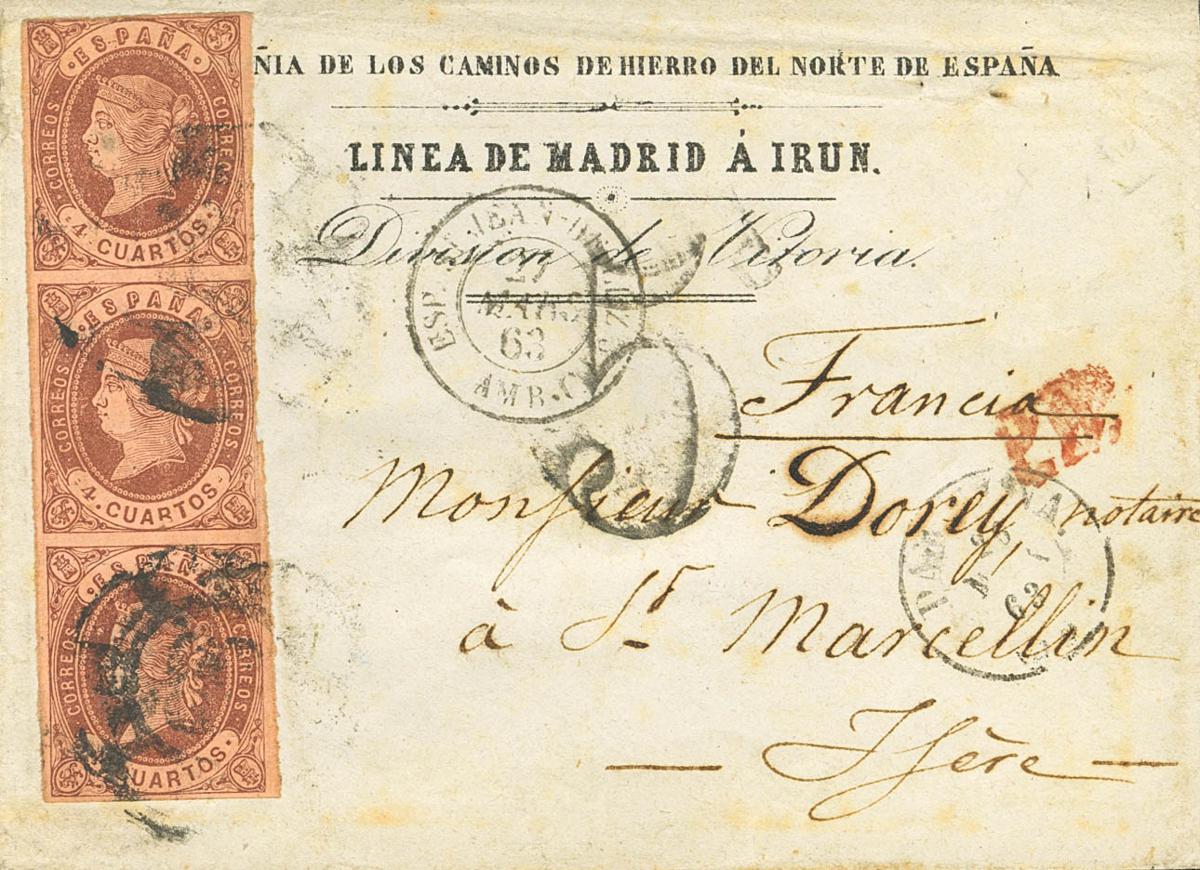 ESPAÑA
CORREOS CORREOS
4 CUARTOS
ESPAÑA
CORREOS CORREOS
4 CUARTOS
ESPAÑA
CORREOS CORREOS
CUARTOS
ÑIA DE LOS CAMINOS DE HIERRO DEL NORTE DE ESPAÑA
LINEA DE MADRID Á IRUN.
Division de Vitoria.
ESP. ST JEAN-DE-LUZ
27
MARS
63
AMB.
Francia
Monsieur Dorey, notaire
à St. Marcellin
Isère
63